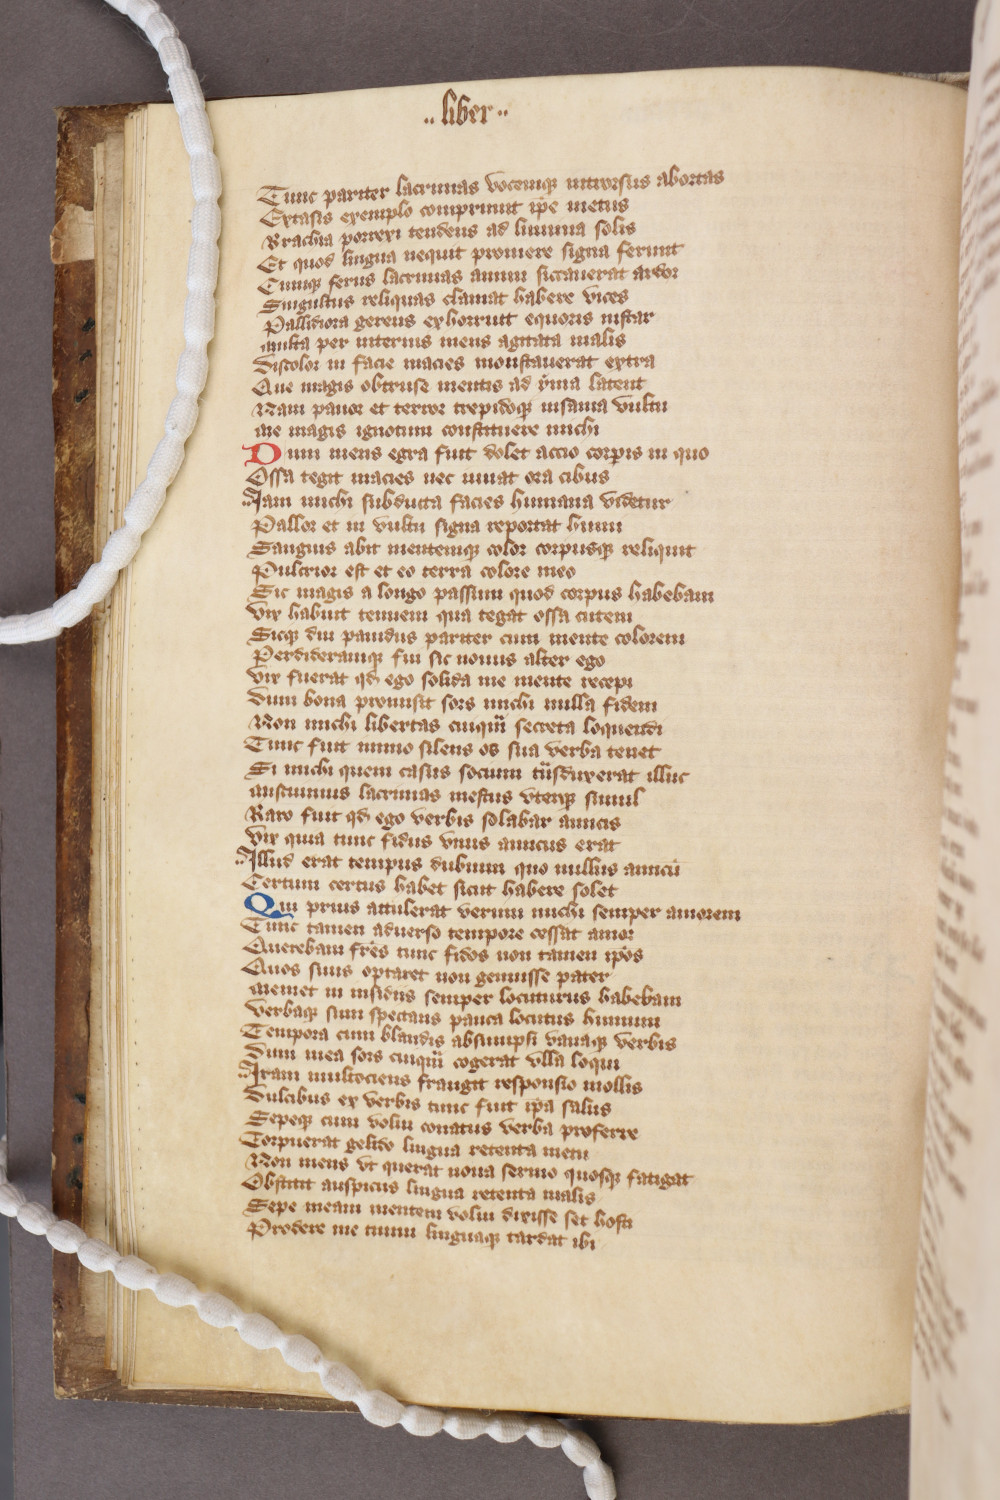 liber
Tunc pariter lacrimas vocemque introrsus abortas
Extasis exemplo comprimit ipse metus
Brachia porrexi tendens ad lumina solis
Et quod lingua nequit promere signa ferunt
Cumque ferus lacrimas animi siccauerat ardor
Singultus reliquas clamat habere vices
Pallidiora gerens exhorruit equoris instar
multa per interius mens agitata malis
Discolor in facie macies monstrauerat extra
Que magis obtruse mentis ad yma latent
Nam pauor et terror trepidoque insania vultu
me magis ignotum constituere michi
Dum mens egra fuit dolet accio corporis in quo
Ossa tegit macies nec iuuat ora cibus
Iam michi subducta facies humana videtur
Pallor et in vultu signa reportat humi
Sanguis abit mentemque color corpusque reliquit
Pulcrior est et eo terra colore meo
Sic magis a longo passum quod corpus habebam
vix habuit tenuem qua tegat ossa cutem
Sicque diu pauidus pariter cum mente colorem
Perdideramque fui sic nouus alter ego
vix fuerat quod ego solida me mente recepi
Dum bona promisit sors michi nulla fidem
Non michi libertas cuiquam secreta loquendi
Tunc fuit immo silens os sua verba tenet
Si michi quem casus socium transduxerat illuc
miscuimus lacrimas mestus vterque simul
Raro fuit quod ego verbis solabar amicis
vix quia tunc fidus vnus amicus erat
Illud erat tempus dubium quo nullus amicum
Certum certus habet sicut habere solet
Qui prius attulerat verum michi semper amorem
Tunc tamen aduerso tempore cessat amor
Querebam fratres tunc fidos non tamen ipsos
Quos suus optaret non genuisse pater
memet in insidiis semper locuturus habebam
verbaque sum spectans pauca locutus humum
Tempora cum blandis absumpsi vanaque verbis
Dum mea sors cuiquam cogerat vlla loqui
Iram multociens frangit responsio mollis
Dulcibus ex verbis tunc fuit ipsa salus
Sepeque cum volui conatus verba proferre
Torpuerat gelido lingua retenta metu
Non meus vt querat noua sermo quosque fatigat
Obstitit auspiciis lingua retenta malis
Sepe meam mentem volui dixisse set hosti
Prodere me timui linguaque tardat ibi